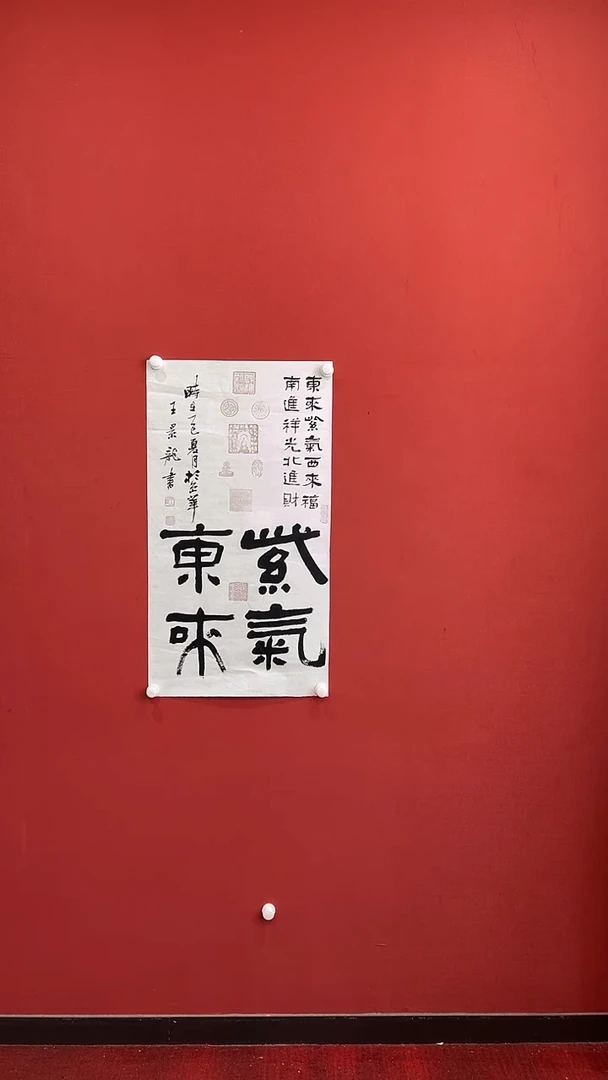 東來紫氣西來福
南進祥光北進財
紫氣
東來
時在乙巳夏月於京華
王景龍書